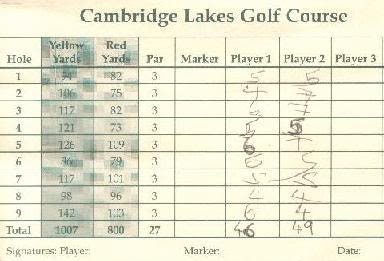 Cambridge Lakes Golf Course
Hole Yellow Yards Red Yards Par Marker Player 1 Player 2 Player 3
1 94 82 3 5 5
2 106 75 3 4
3 117 82 3
4 121 73 3 5
5 126 109 3 6
6 96 79 3 6 5
7 117 101 3 5
8 98 96 3 4 4
9 142 103 3 6 4
Total 1007 800 27 46 49
Signatures: Player: Marker: Date: